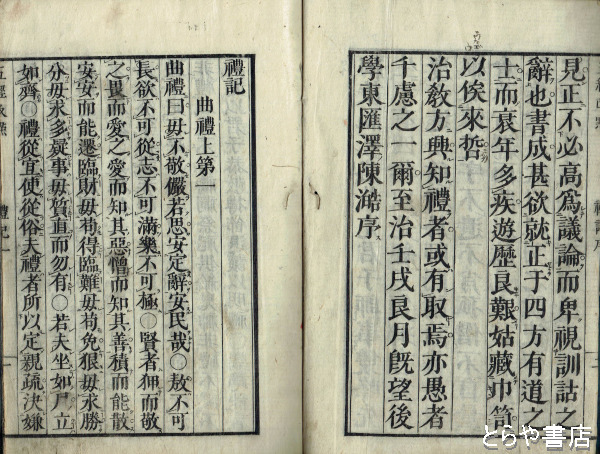 見正不必高為議論而卑視訓詁之
辭也書成甚欲就正于四方有道之
士而衰年多疾遊歷良艱姑藏巾笥
以俟來哲
治教方興知禮者或有取焉亦愚者
千慮之一爾至治壬戌良月既望後
學東匯澤陳澔序
禮記
曲禮上第一
曲禮曰毋不敬儼若思安定辭安民哉○敖不可
長欲不可從志不可滿樂不可極○賢者狎而敬
之畏而愛之愛而知其惡憎而知其善積而能散
安安而能遷臨財毋苟得臨難毋苟免狠毋求勝
分毋求多疑事毋質直而勿有○若夫坐如尸立
如齊○禮從宜使從俗夫禮者所以定親疏決嫌
禮記
とらや書店